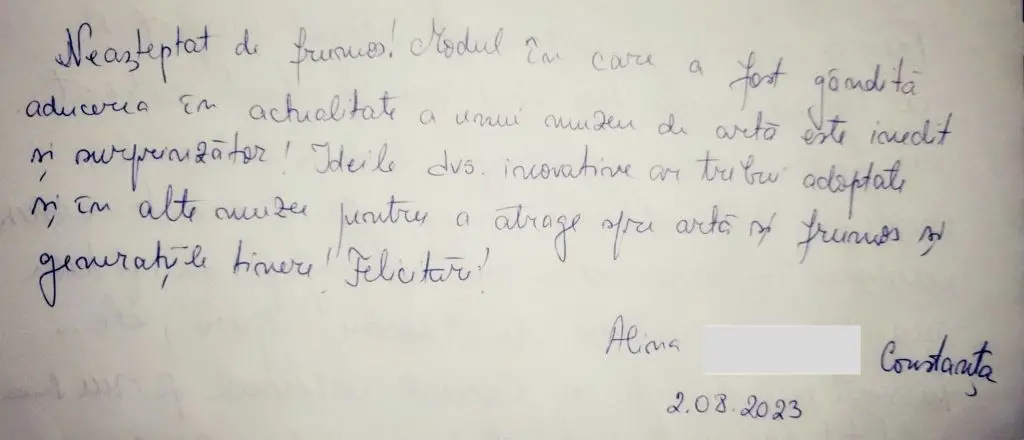 Neașteptat de frumos! Modul în care a fost gândită
aducerea în actualitate a unui muzeu de artă este inedit
și surprinzător! Ideile dvs. inovative ar trebui adoptate
și în alte muzee pentru a atrage spre artă și frumos și
generațiile tinere! Felicitări!
Alina
Constanța
2.08.2023